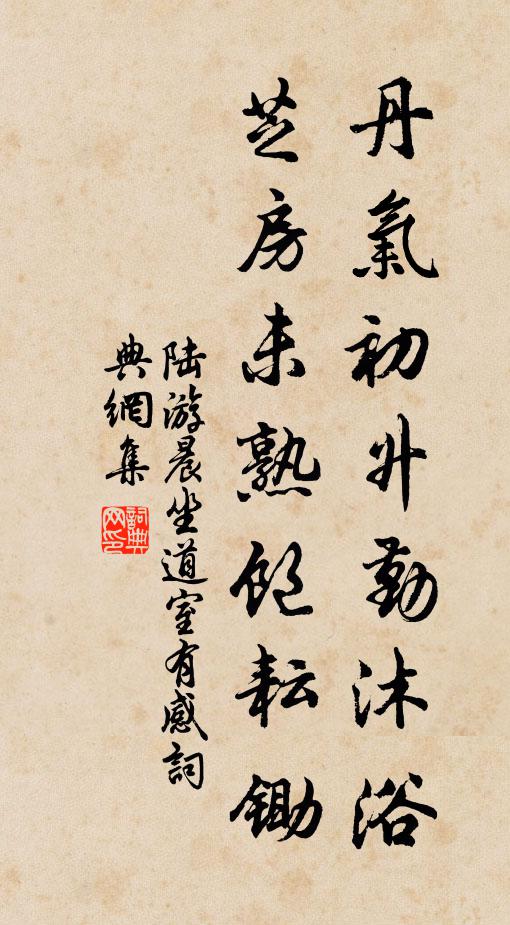 丹氣初升勤沐浴
芝房未熟飽耘鋤
陆游晨坐道室有感詞
典網集
詞典
网印